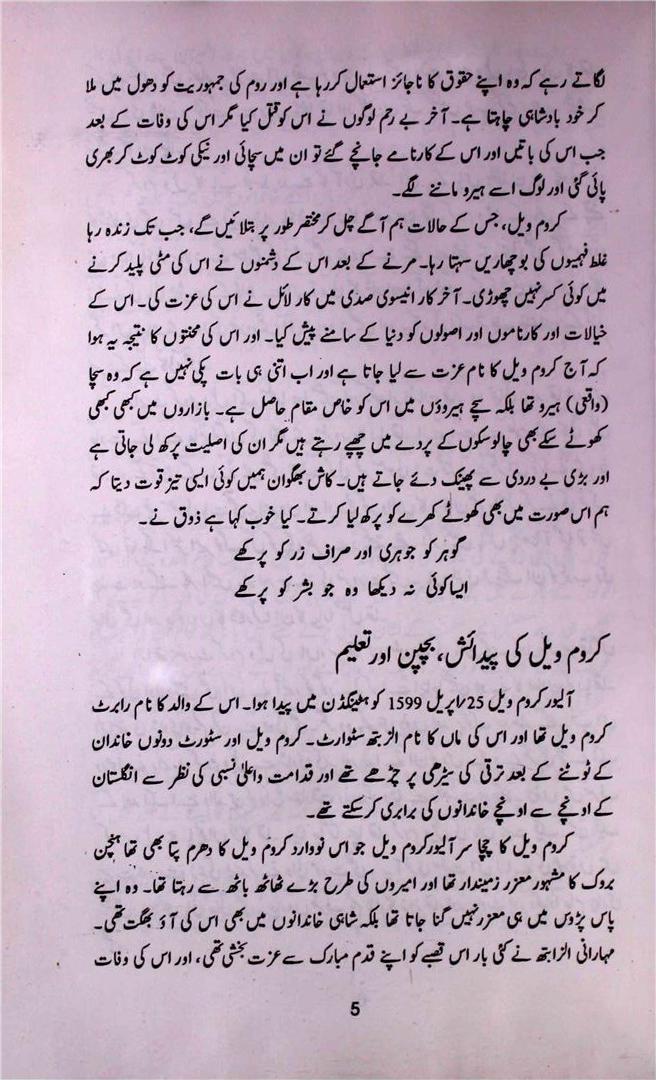 لگاتے رہے کہ وہ اپنے حقوق کا ناجائز استعمال کررہا ہے اور روم کی جمہوریت کو دھول میں ملا
کر خود بادشاہی چاہتا ہے۔ آخر بے رحم لوگوں نے اس کو قتل کیا مگر اس کی وفات کے بعد
جب اس کی باتیں اور اس کے کارنامے جانچے گئے تو ان میں سچائی اور نیکی کوٹ کوٹ کر بھری
پائی گئی اور لوگ اسے ہیرو ماننے لگے۔
کروم ویل، جس کے حالات ہم آگے چل کر مختصر طور پر بتلائیں گے، جب تک زندہ رہا
غلط فہمیوں کی بوچھاریں سہتا رہا۔ مرنے کے بعد اس کے دشمنوں نے اس کی مٹی پلید کرنے
میں کوئی کسر نہیں چھوڑی۔ آخر کار انیسوی صدی میں کار لائل نے اس کی عزت کی۔ اس کے
خیالات اور کارناموں اور اصولوں کو دنیا کے سامنے پیش کیا۔ اور اس کی محنتوں کا نتیجہ یہ ہوا
کہ آج کروم ویل کا نام عزت سے لیا جاتا ہے اور اب اتنی ہی بات پکی نہیں ہے کہ وہ سچا
(واقعی) ہیرو تھا بلکہ سچے ہیروؤں میں اس کو خاص مقام حاصل ہے۔ بازاروں میں کبھی کبھی
کھوٹے سکے بھی چالو سکوں کے پردے میں چھپے رہتے ہیں مگر ان کی اصلیت پرکھ لی جاتی ہے
اور بڑی بے دردی سے پھینک دئے جاتے ہیں۔ کاش بھگوان ہمیں کوئی ایسی تیز قوت دیتا کہ
ہم اس صورت میں بھی کھوٹے کھرے کو پرکھ لیا کرتے۔ کیا خوب کہا ہے ذوق نے۔
گوہر کو جوہری اور صراف زر کو پرکھے
ایسا کوئی نہ دیکھا وہ جو بشر کو پرکھے
کروم ویل کی پیدائش، بچپن اور تعلیم
آلیور کروم ویل 25/اپریل 1599 کو ہنٹینگڈن میں پیدا ہوا۔ اس کے والد کا نام رابرٹ
کروم ویل تھا اور اس کی ماں کا نام الزبتھ سٹوارٹ۔ کروم ویل اور سٹورٹ دونوں خاندان
کے ٹوٹنے کے بعد ترقی کی سیڑھی پر چڑھے تھے اور قدامت و اعلیٰ نسبی کی نظر سے انگلستان
کے اونچے سے اونچے خاندانوں کی برابری کر سکتے تھے۔
کروم ویل کا چچا سر آلیور کروم ویل جو اس نووارد کروم ویل کا دھرم پتا بھی تھا ہنچن
بروک کا مشہور معزر زمیندار تھا اور امیروں کی طرح بڑے ٹھاٹھ باٹھ سے رہتا تھا۔ وہ اپنے
پاس پڑوس میں ہی معزر نہیں گنا جاتا تھا بلکہ شاہی خاندانوں میں بھی اس کی آؤ بھگت تھی۔
مہارانی الزابتھ نے کئی بار اس قصبے کو اپنے قدم مبارک سے عزت بخشی تھی، اور اس کی وفات
5